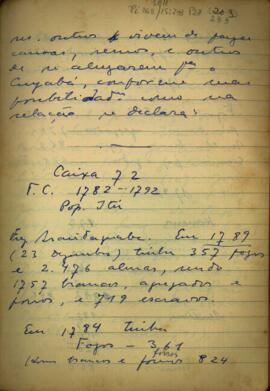 ns. outros vivem de fazer
canoas, remos, e outros
de se alugarem pª o
Cuyabá, conforme suas
possibilidades como na
relação se declara:
Caixa 72
T.C. 1782-1792
Pop. Itú
Em 1789
(23 Dezembro) tinha 357 fogos
e 2.476 almas, sendo
1757 brancos, agregados e
forros, e 719 escravos.
Em 1784 tinha
Fogos - 361
brancos e forros 824